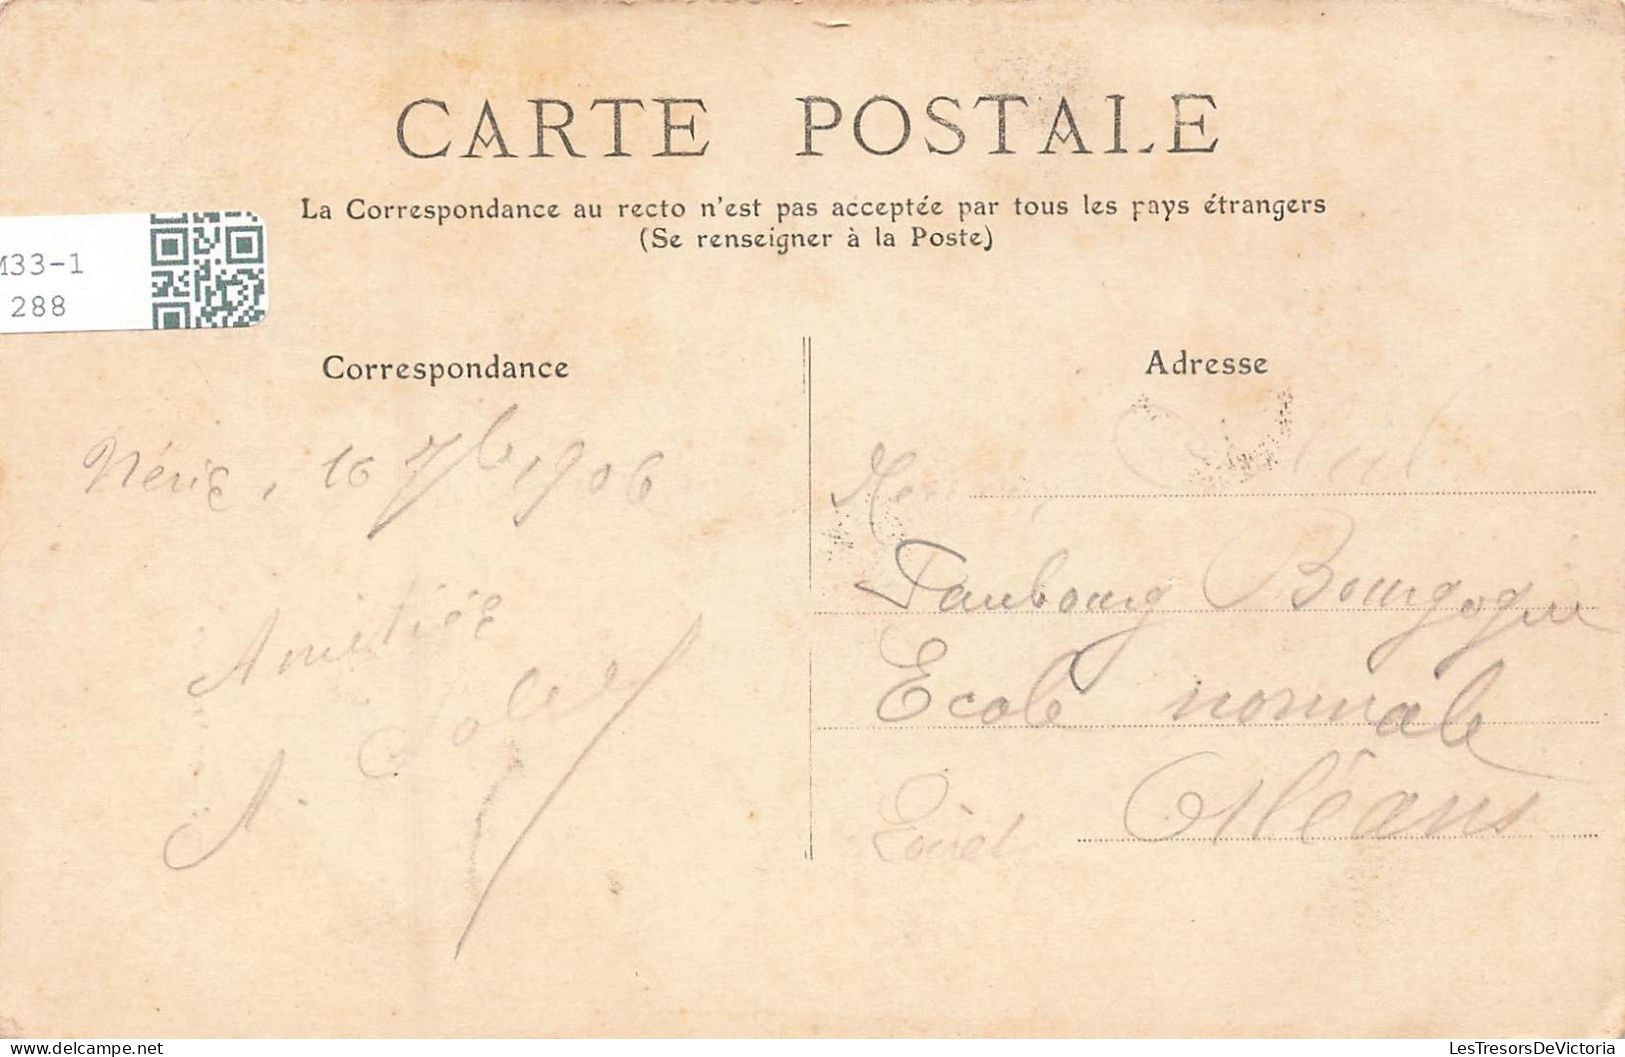 CARTE POSTALE
La Correspondance au recto n'est pas acceptée par tous les pays étrangers
(Se renseigner à la Poste)
M33-1
288
Correspondance
Néris, 16 7b 1906
Amitiés
A.
Adresse
Faubourg Bourgogne
Ecole normale
Orléans
Loiret
LesTresorsDeVictoria